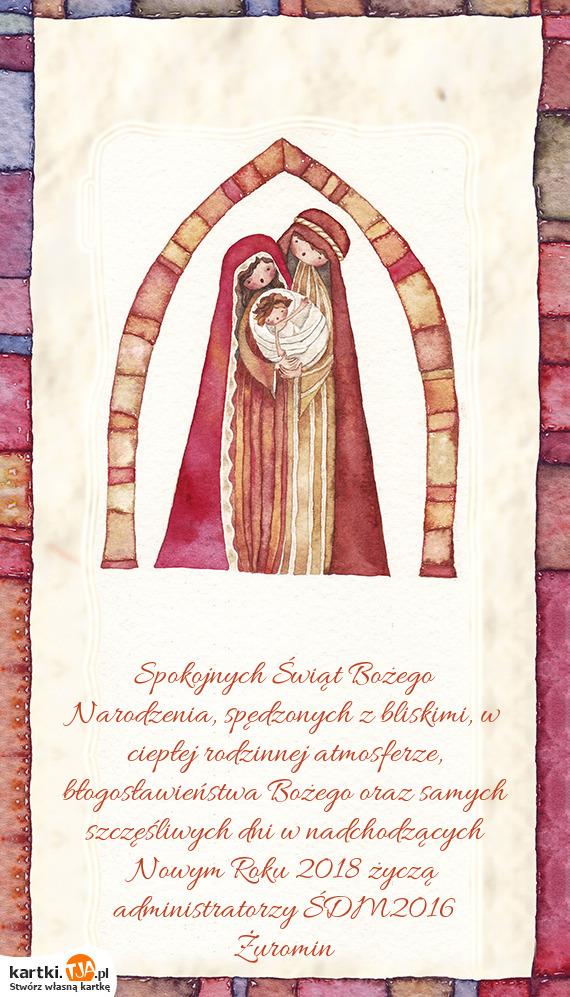 Spokojnych Świąt Bożego
Narodzenia, spędzonych z bliskimi, w
ciepłej rodzinnej atmosferze,
błogosławieństwa Bożego oraz samych
szczęśliwych dni w nadchodzących
Nowym Roku 2018 życzą
administratorzy ŚDM2016
Żuromin
kartki.TJA.pl
Stwórz własną kartkę